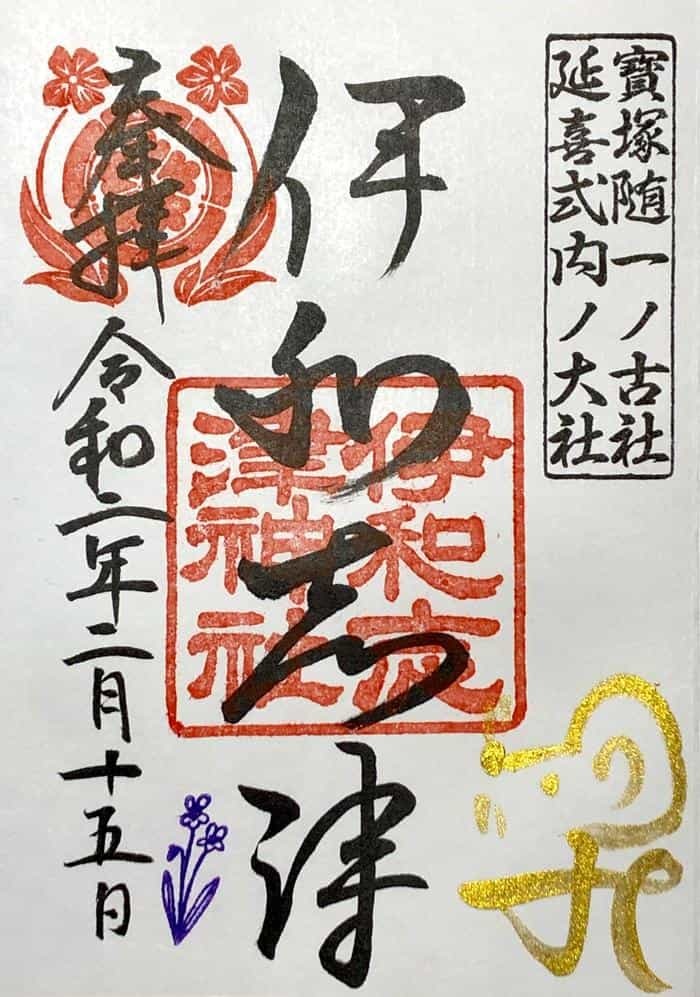 寶塚随一ノ古社
延喜式内ノ大社
伊和志津
伊和志
津神社
奉拝
令和二年二月十五日
子